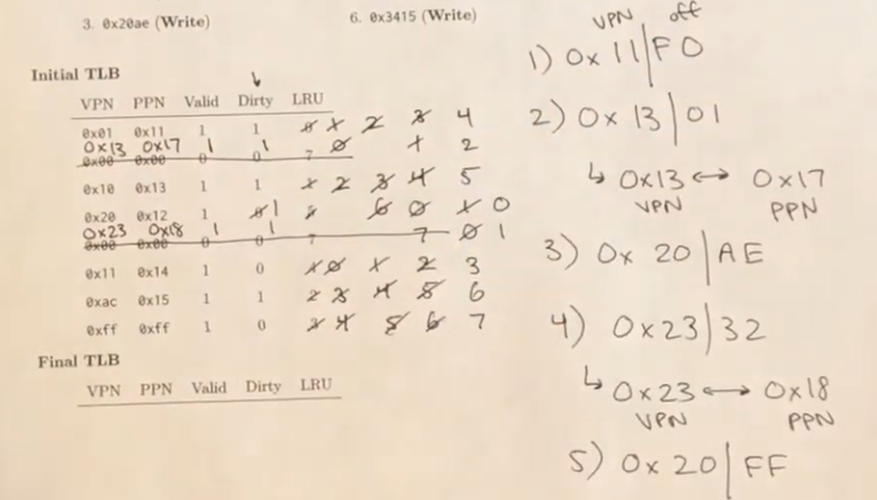 3. 0x20ae (Write)
6. 0x3415 (Write)
Initial TLB
VPN PPN Valid Dirty LRU
0x01 0x11 1 1 0 1 2 3 4
0x13 0x17 1 1 0 1 2
0x00 0x00 0 0 7
0x10 0x13 1 1 1 2 3 4 5
0x20 0x12 1 0 1 6 0 1 0
0x23 0x18 1 1 7 0 1
0x00 0x00 0 0 7
0x11 0x14 1 0 1 0 1 2 3
0xac 0x15 1 1 2 3 4 5 6
0xff 0xff 1 0 3 4 5 6 7
Final TLB
VPN PPN Valid Dirty LRU
VPN off
1) 0x 11|F0
2) 0x 13|01
↳ 0x13 ↔ 0x17
VPN PPN
3) 0x 20|AE
4) 0x23|32
↳ 0x23 ↔ 0x18
VPN PPN
5) 0x 20|FF